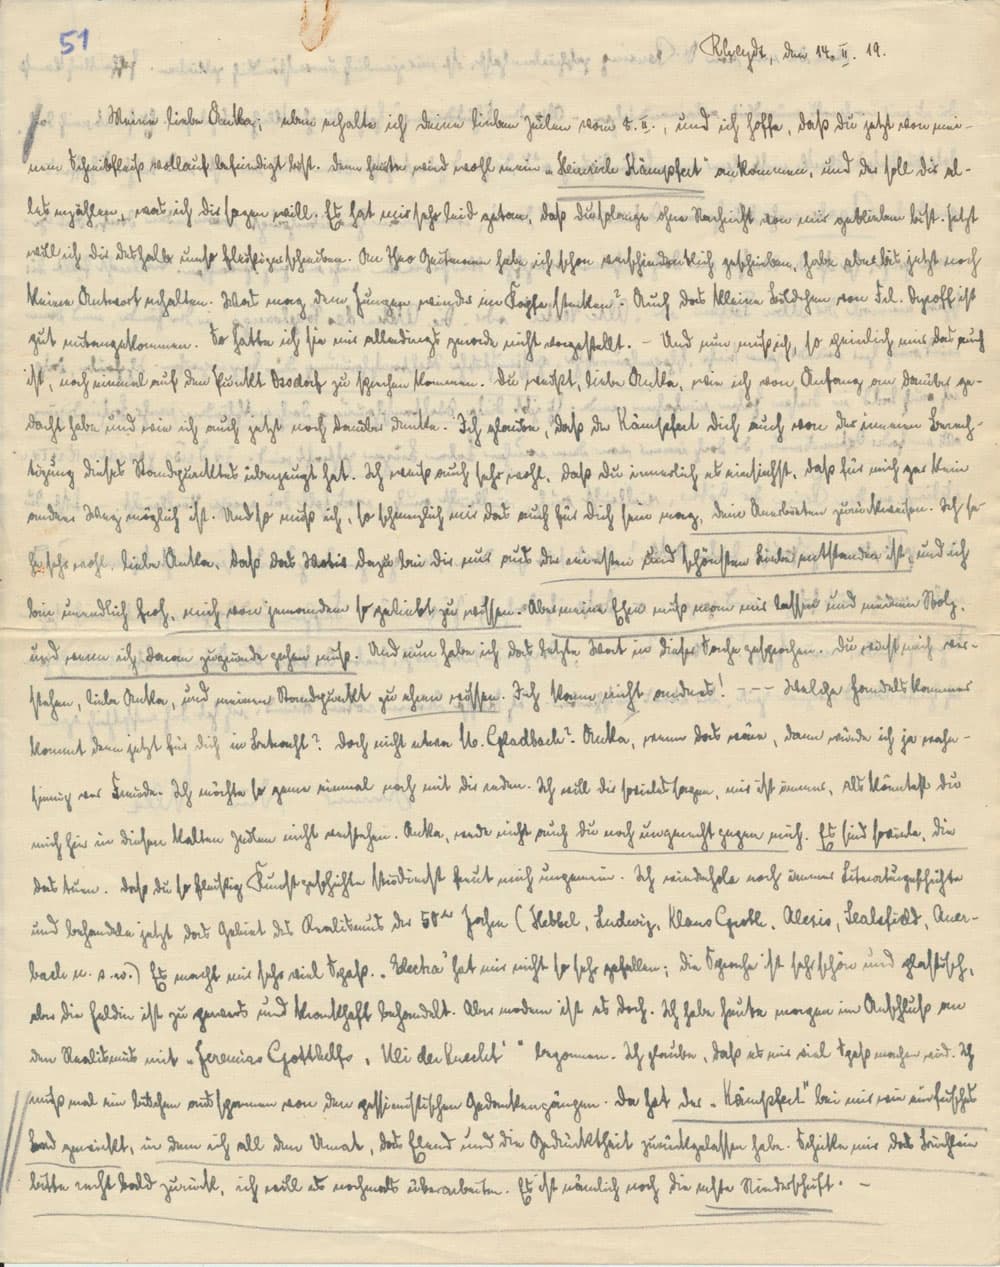 51
Rheydt, den 14. II. 19.
Meine liebe Anka; eben erhalte ich deine lieben Zeilen vom 8. II., und ich hoffe, daß du jetzt von mei-
nem Schreibfleiß vollauf befriedigt bist. Denn heute wird wohl mein „Heinrich Kämpfert“ ankommen, und der soll dir al-
les erzählen, was ich dir sagen will. Es hat mir sehr leid getan, daß du solange ohne Nachricht von mir geblieben bist. Jetzt
will ich dir deshalb umso fleißiger schreiben. An Theo Geitmann habe ich schon verschiedentlich geschrieben, habe aber bis jetzt noch
keine Antwort erhalten. Was mag dem Jungen wieder im Kopfe stecken? Auch das kleine Bildchen von Frl. Dyroff ist
gut mitangekommen. So hatte ich sie mir allerdings gerade nicht vorgestellt. – Und nun muß ich, so peinlich mir das auch
ist, noch einmal auf den Punkt zu sprechen kommen. Du weißt, liebe Anka, wie ich von Anfang an darüber ge-
dacht habe und wie ich auch jetzt noch darüber denke. Ich glaube, daß der Kämpfert dich auch von der inneren Berech-
tigung dieses Standpunktes überzeugt hat. Ich weiß auch sehr wohl, daß du innerlich es einsiehst, daß für mich gar kein
andrer Weg möglich ist. Und so muß ich, so schmerzlich mir das auch für dich sein mag, dein Anerbieten zurückweisen. Ich se-
he sehr wohl, liebe Anka, daß das Motiv dazu bei dir nur aus der reinsten und schönsten Liebe entstanden ist, und ich
bin unendlich froh, mich von jemandem so geliebt zu wissen. Aber meine Ehre muß man mir lassen und meinen Stolz,
und wenn ich daran zugrunde gehen muß. Und nun habe ich das letzte Wort in dieser Sache gesprochen. Du wirst mich ver-
stehen, liebe Anka, und meinen Standpunkt zu ehren wissen. Ich kann nicht anders! – – – Welche Handelskammer
kommt denn jetzt für dich in Betracht? Doch nicht etwa M. Gladbach? Anka, wenn das wäre, dann würde ich ja wahn-
sinnig vor Freude. Ich möchte so gerne einmal noch mit dir reden. Ich will dir soviel sagen, mir ist immer, als könntest du
mich hier in diesen kalten Zeilen nicht verstehen. Anka, werde nicht auch du noch ungerecht gegen mich. Es sind soviele, die
das tuen. Daß du so fleißig Kunstgeschichte studierst freut mich ungemein. Ich wiederhole noch immer Literaturgeschichte
und behandle jetzt das Gebiet des Realismus der 50er Jahre (Hebbel, Ludwig, Klaus Groth, Alexis, Sealsfield, Auer-
bach u. s. w.) Es macht mir sehr viel Spaß. „Electra“ hat mir nicht so sehr gefallen; die Sprache ist sehr schön und plastisch,
aber die Heldin ist zu pervers und krankhaft behandelt. Aber modern ist es doch. Ich habe heute morgen im Anschluß an
den Realismus mit „Jeremias Gotthelfs „Uli der Knecht“ begonnen. Ich glaube, daß es mir viel Spaß machen wird. Ich
muß mal ein bißchen ausspannen von den pessimistischen Gedankengängen. Da hat der „Kämpfert“ bei mir wie ein frisches
Bad gewirkt, in dem ich all den Unrat, das Elend und die Gedrücktheit zurückgelassen habe. Schicke mir das Büchlein
bitte recht bald zurück, ich will es nochmals überarbeiten. Es ist nämlich noch die erste Niederschrift. –